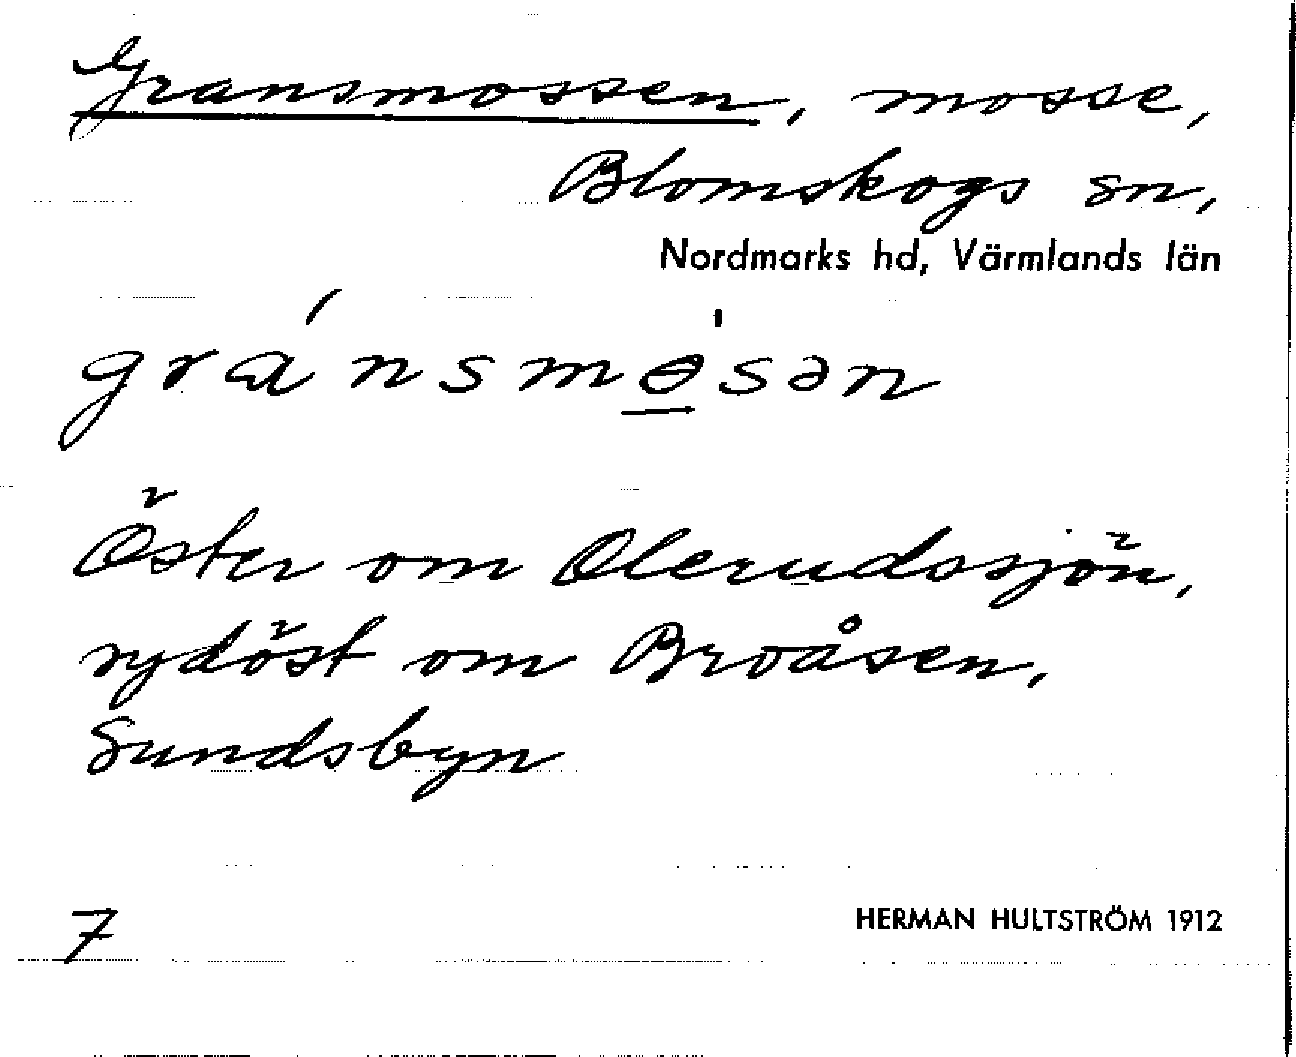 Gransmossen, mosse,
Blomskogs sn,
Nordmarks hd, Värmlands län
gránsmɵ̲̍sən
Öster om Olerudssjön,
sydöst om Broåsen,
Sundsbyn
7
HERMAN HULTSTRÖM 1912